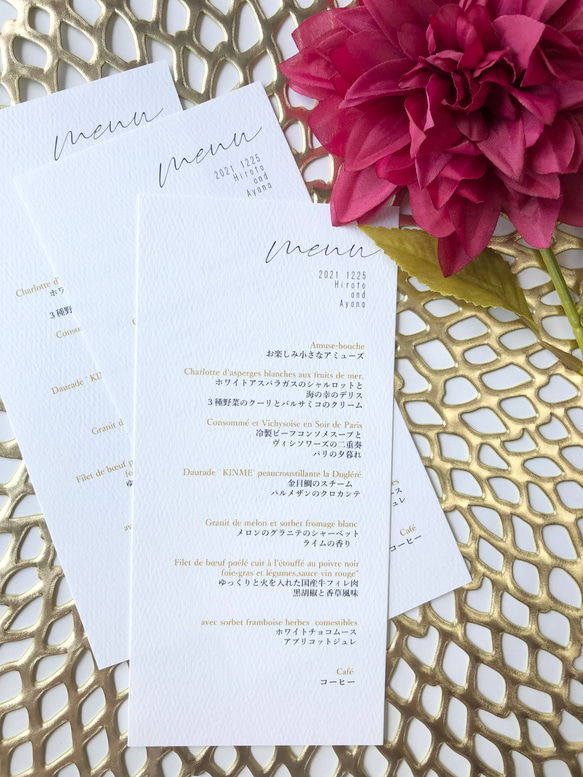 menu
2021 1225
Hiroto
and
Ayana
Amuse-bouche
お楽しみ小さなアミューズ
Charlotte d'asperges blanches aux fruits de mer.
ホワイトアスパラガスのシャルロットと
海の幸のデリス
3種野菜のクーリとバルサミコのクリーム
Consommé et Vichysoise en Soir de Paris
冷製ビーフコンソメスープと
ヴィシソワーズの二重奏
パリの夕暮れ
Daurade ˝KINME˝ peaucroustillante la Dugléré
金目鯛のスチーム
パルメザンのクロカンテ
Granit de melon et sorbet fromage blanc
メロンのグラニテのシャーベット
ライムの香り
Filet de bœuf poêlé cuit à l'étouffé au poivre noir
foie-gras et légumes,sauce vin rouge"
ゆっくりと火を入れた国産牛フィレ肉
黒胡椒と香草風味
avec sorbet framboise herbes comestibles
ホワイトチョコムース
アプリコットジュレ
Café
コーヒー
menu
2021 1225
Hiroto
and
Ayana
ース
ジュレ
Café
コーヒー
menu
Charlotte d'
ホワ
3種野
Conso
Daurade ˝KIN
Granit d
Filet de bœuf p
foie
ゆ
av